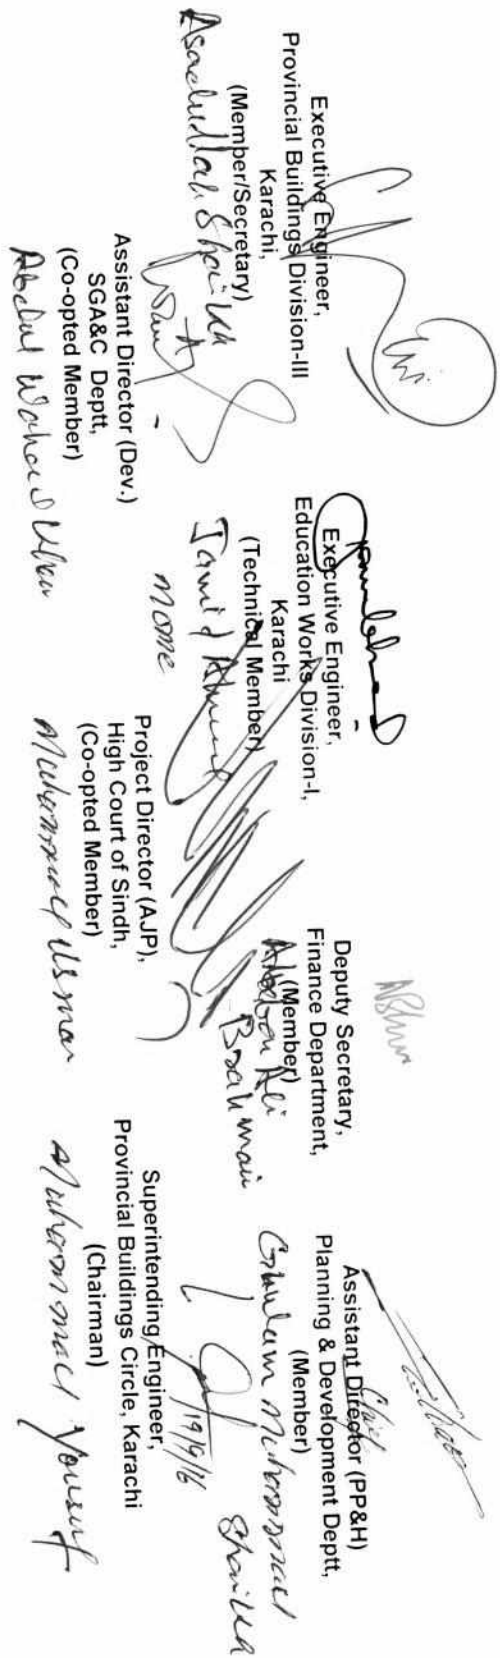 Executive Engineer,
Provincial Buildings Division-III
Karachi,
(Member/Secretary)
Asadullah Shaikh
Executive Engineer,
Education Works Division-I,
Karachi
(Technical Member)
Jamil Ahmed
Deputy Secretary,
Finance Department,
(Member)
Ali
Assistant Director (PP&H)
Chief
Planning & Development Deptt,
(Member)
Ghulam Muhammad
Shaikh
Assistant Director (Dev.)
SGA&C Deptt,
(Co-opted Member)
Abdul Wahab
Project Director (AJP),
High Court of Sindh,
(Co-opted Member)
Muhammad Usman
Superintending Engineer,
19/9/16
Provincial Buildings Circle, Karachi
(Chairman)
Muhammad Yousuf